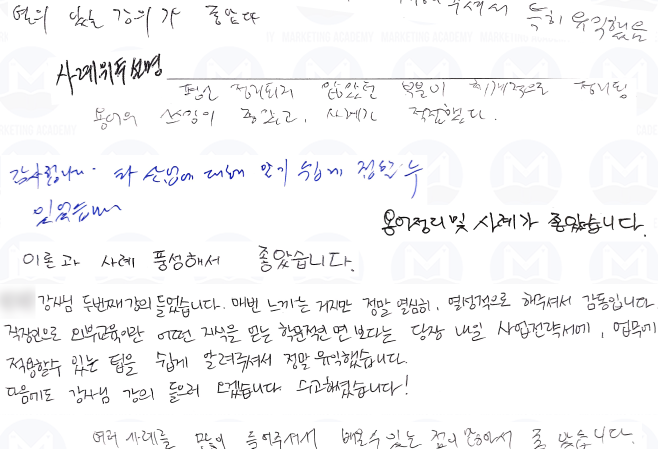 열의 있는 강의가 좋았다
주셔서 특히 유익했음
사례위주 설명
평소 정리되지 않았던 부분이 체계적으로 정리됨
용어의 쓰임이 좋았고, 사례가 적절했다.
감사합니다. 타 산업에 대해 알기 쉽게 접할 수
있었습니다
용어정리 및 사례가 좋았습니다.
이론과 사례 풍성해서 좋았습니다.
강사님 두번째 강의 들었습니다. 매번 느끼는 거지만 정말 열심히, 열성적으로 해주셔서 감동입니다
직장인으로 외부교육이란 어떤 지식을 얻는 학문적인 면 보다는 당장 내일 사업전략서에, 업무에
적용할수 있는 팁을 쉽게 알려주셔서 정말 유익했습니다.
다음에도 강사님 강의 들으러 오겠습니다 수고하셨습니다!
여러 사례를 많이 들어주셔서 배울 수 있는 점이 많아서 좋았습니다.
MARKETING ACADEMY